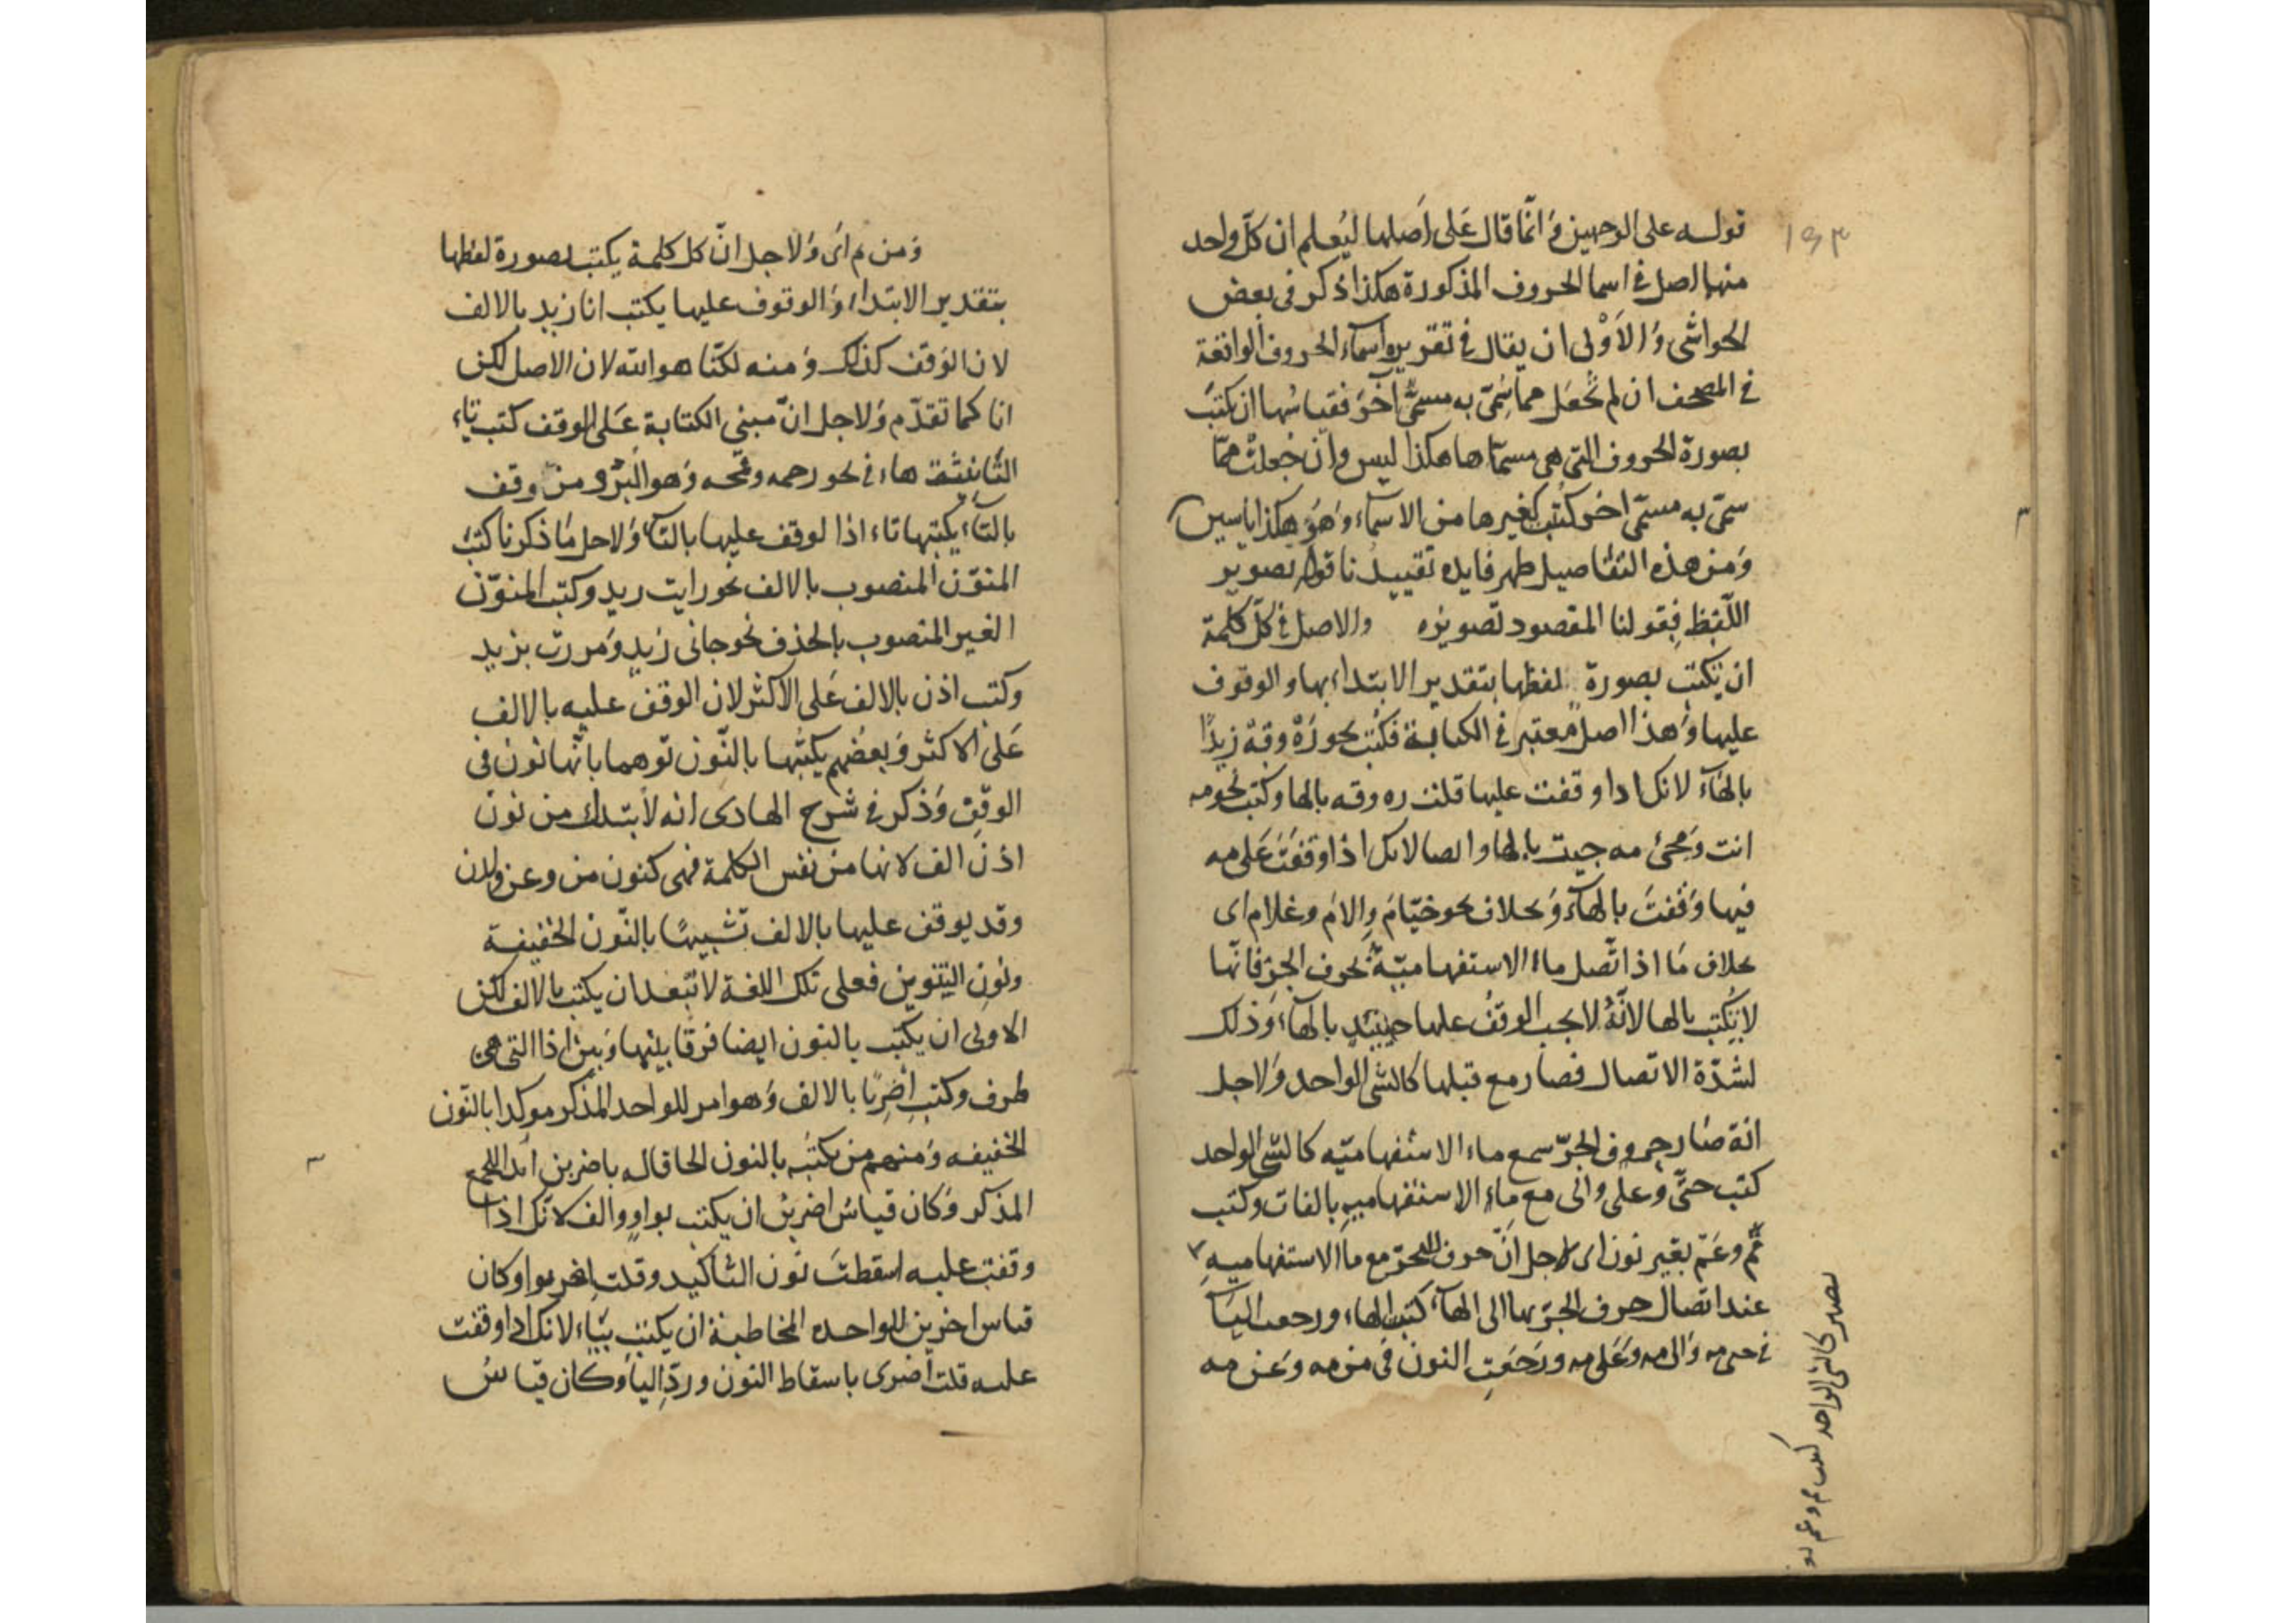 ١٥٣
قوله على الوجهين وَانّما قال عَلى اَصلها ليُعلم ان كلّ واحد
منها اصل فى اسما الحروف المذكورة هكذا ذكر فى بعض
الحواشى وَالاَوْلى ان يقال فى تقريره اسمآء الحروف الواقعة
فى المصحف ان لم تُجعَل مما سُمّىَ به مسمًّى آخَرَ فقياسُها ان يكتبَ
بصورة الحروف التى هى مسمّاها هكذا ليس وان جُعلتْ ممّا
سمّى به مسمّى اخر كُتُب كغيرها من الاسمآء وَهُوَ هكذا ياسين
وَمن هذه التفاصيل ظهر فايده تقييدنا قوله تصوير
اللّفظ بِقولنا المقصود تصويره والاصل فى كلّ كلمة
ان يكتب بصورة لفظها بتقدير الابتداء بها والوقوف
عليها وَهذا اصلٌ معتبر فى الكتابة فكُتب نحو رَهْ وقِهْ زيدًا
بالهَآء لانك اداو قفت عليها قلت ره وقه بالها وكتب نحو مه
انت وَمجئ مه جيت بالها وايضا لانك اذا وقفتَ عَلى مه
فيها وَقفتَ بالهآء وَبخلاف نحو ختّامَ وإلامَ وغلام اى
بخلاف مَا اذا اتّصل ماء الاستفهاميّةُ بحرف الجرّ فانّها
لا يُكتب بالها لانّهُ لا يجب الوقفُ عليها حينئذٍ بالهآء وَذلك
لشدّة الاتّصال فصار مع قبلها كالشى الواحد وَلاجل
انّه صَار حروف الجرّ مع ماء الاستفهاميّه كالشى الواحد
كتب حتَّى وَعلى والى مع ماء الاستفهاميه بالفات وكتب
مِمَّ وعَمّ بغير نون اى لاجل انّ حرف الجرّ مع ما الاستفهاميهِ
عند اتصال حرف الجرّ بها الى الهآء كُتب الهاء ورجعت اليآء
فى حتى مه وَالى مه وَعَلى مه ورَجَعَتِ النون فى من مه وَعَن مه
يصير كالشى الواحد كتب مم وعم
وَمن ثم اىَ وَلاجل انّ كل كلمة يكتب بصورة لفظها
بتقدير الابتداء وَالوقوف عليها يكتب انا زيد بالالف
لان الوَقف كذلك وَمنه لكنّا هو الله لان الاصل لكن
انا كما تقدّم وَلاجل انّ مبنى الكتابة عَلى الوقف كتب تاء
التّانيث هاء فى نحو رحمه وقمحه وَهو البُرّ و من وقف
بالتّآء يكتبها تاء اذا لوقف عليها بالتآء وَلاجل مَا ذكرنا كتب
المنوّن المنصوب بالالف نحو رايت زيد وكتب المنوّن
الغير المنصوب بالحذف نحو جانى زيدٌ وَمررت بزيد
وكتب اذن بالالف عَلى الاكثر لان الوقف عليه بالالف
عَلى الاكثر وَبعضهم يكتبُها بالنّون توهما بانّها نون فى
الوقِف وَذكر فى شرح الهادى انه لا يبتدل من نون
اذن الف لانها من نفس الكلمة فهى كنون من وعن ولدن
وقد يوقف عليها بالالف تشبيهًا بالنّون الخفيفة
ونون التنوين فعلى تلك اللغة لا تبعد ان يكتب بالالف لكن
الاولى ان يكتب بالنون ايضا فرقا بينها وَبين اذا التى هى
ظرف وكتب اِضرِبًا بالالف وَهو امر للواحد المذكر موكدا بالنّون
الخفيفه وَمنهم من يكتبُه بالنون الحاقا له باضربن امرا للجمع
المذكر وَكان قياسُ اضربُن ان يكتب بواوٍ وألف لانّك اذا
وقفت عليه اسقطتَ نون التاكيد وقلت اِضربوا وكان
قياس اضربن للواحده المخاطبة ان يكتب بيَاء لانك اذا وقفت
عليه قلت اضربى باسقاط النون وردّ اليَآ وَكان قياسُ